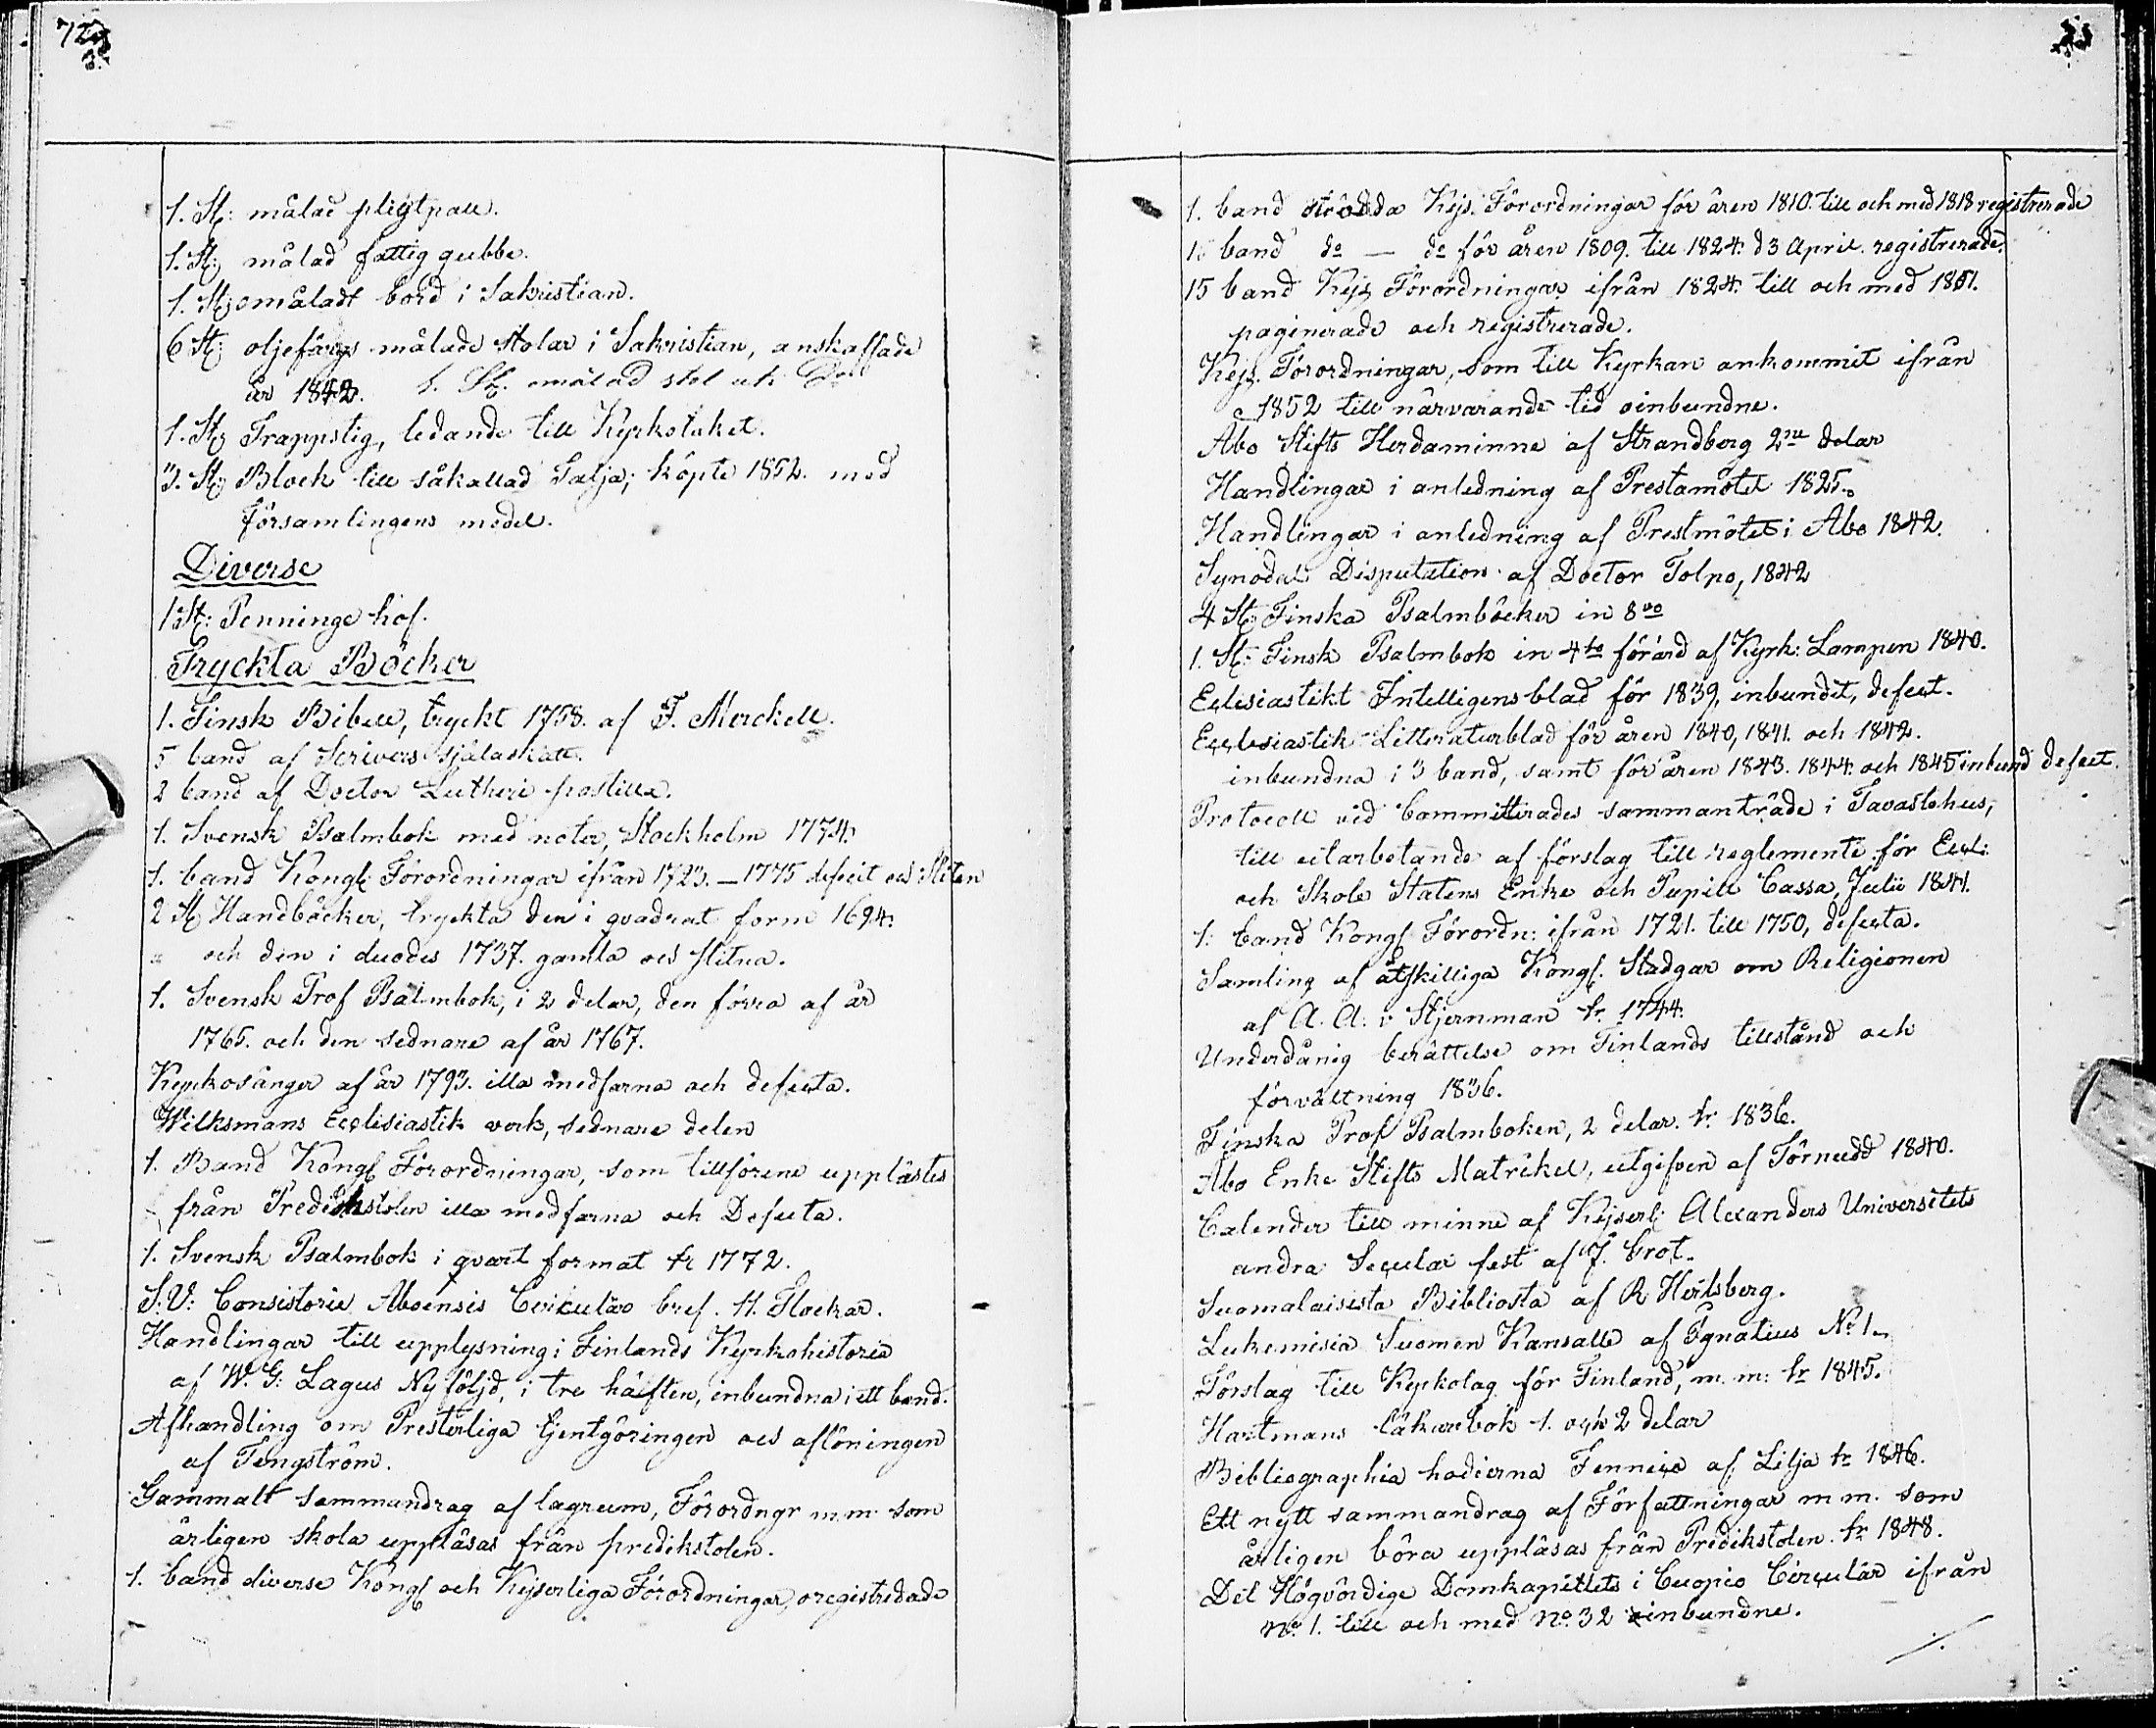 72
1. St: målad pligtpall.
1. St: målad fattig gubbe.
1. St: omåladt bord i Sakristian.
6 St: oljefärgs målade stolar i Sakristian, anskaffade
år 1842. 1. St: omålad stol uti Do
1. St: Trappstig, ledande till Kyrkotaket.
3. St: Block till såkallad Talja; köpte 1852. med
församlingens medel.
Diverse
1 St: Penninge hof.
Tryckta Böcker
1. Finsk Bibell, tryckt 1758. af F. Merckell.
5 band af Scrivers själaskatt.
2 band af Doctor Lutheri postilla.
1. Svensk Psalmbok med noter, Stockholm 1774.
1. band Kongl: Förordningar ifrån 1723. - 1775 defect och Sliten
2 St Handböcker, tryckta den i qvadrat form 1694.
och den i duodes 1737. gamla och slitna.
1. Svensk Prof Psalmbok, i 2 delar, den förra af år
1765. och den sednare af år 1767.
Kyrkosånger af år 1793. illa medfarna och defecta.
Wilksmans Ecclesiastik verk, sednare delen
1. Band Kongl Förordningar, som tillförene upplästes
från Predikstolen illa medfarna och Defecta.
1. Svensk Psalmbok i qvart format tr 1772.
S: V: Consistorii Aboensis Cirkulär bref. 11. Flockar.
Handlingar till upplysning i Finlands Kyrkohistoria
af W. G: Lagus Ny följd, i tre häften, inbundna i ett band.
Afhandling om Presterliga tjentgöringen och aflöningen
af Tengström.
Gammalt sammandrag af lagrum, Förordngr m.m. som
årligen skola uppläsas från predikstolen.
1. band diverse Kongl och Kejserliga Förordningar, oregistrerade
1. band strödda Kejs. Förordningar för åren 1810. till och med 1818 registrerade
band do — do för åren 1809. till 1824. d 3 April. registrerade.
15 band Kejs Förordningar ifrån 1824. till och med 1851.
paginerade och registrerade.
Kejs. Förordningar, som till Kyrkan ankommit ifrån
1852 till närvarande tid oinbundne.
Åbo Stifts Herdaminne af Strandberg 2ne delar
Handlingar i anledning af Prestamötet 1825.
Handlingar i anledning af Prestmötet i Åbo 1842.
Synodal Disputation af Doctor Tolpo, 1842
4 St: Finska Psalmböcker in 8vo
1. St: Finsk Psalmbok in 4to förärd af Kyrkh: Lampen 1840.
Eclesiastikt Intelligensblad för 1839, inbundit, defect.
Ecclesiastik Litteraturblad för åren 1840, 1841. och 1842.
inbundna i 3 band, samt för åren 1843. 1844. och 1845 inbund defect.
Protocoll vid Committerades sammanträde i Tavastehus,
till utarbetande af förslag till reglemente för Eccl:
och Skole Statens Enke och Pupill Cassa, Julii 1841.
1. band Kongl Förordn: ifrån 1721. till 1750, defecta.
Samling af åtskilliga Kongl. Stadgar om Religionen
af A. A: v Stjernman tr. 1744.
Underdånig berättelse om Finlands tillstånd och
förvaltning 1836.
Finska Prof Psalmboken, 2 delar. tr. 1836.
Åbo Erke Stifts Matrikel, utgifven af Törnudd 1840.
Calender till minne af Kejserl: Alexanders Universitets
andra Secular fest af J. Grot.
Suomalaisista Bibliosta af R Hertsberg.
Lukemisia Suomen Kansalle af Ignatius No 1.
Förslag till Kyrkolag för Finland, m. m: tr 1845.
Hartmans läkarebok 1. och 2 delar
Bibliographia hodierna Fennica af Lilja tr 1846.
Ett nytt sammandrag af Författningar m m. som
årligen böra uppläsas från Predikstolen. tr 1848.
Det Högvördige Domkapitlets i Cuopio Circulär ifrån
No. 1. till och med No. 32 oinbundne.